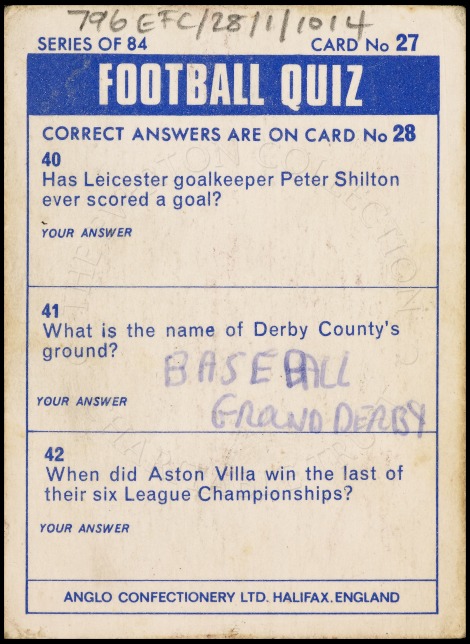 796 EFC/28/1/1014
SERIES OF 84 CARD No 27
FOOTBALL QUIZ
CORRECT ANSWERS ARE ON CARD No 28
40
Has Leicester goalkeeper Peter Shilton
ever scored a goal?
YOUR ANSWER
41
What is the name of Derby County's
ground?
BASEBALL
GROUND DERBY
YOUR ANSWER
42
When did Aston Villa win the last of
their six League Championships?
YOUR ANSWER
ANGLO CONFECTIONERY LTD. HALIFAX. ENGLAND